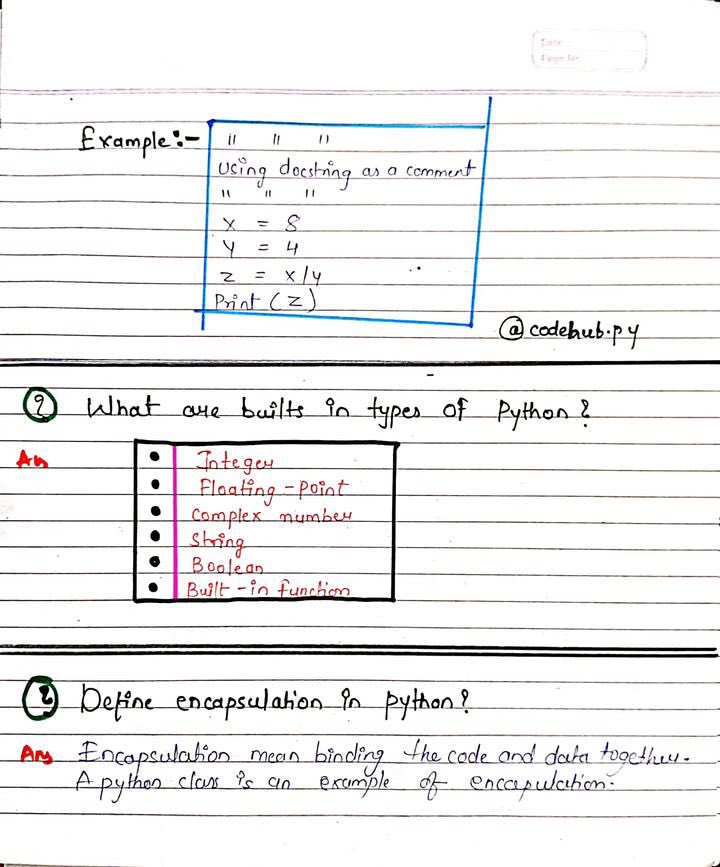 Date :
Page No.
Example:-
" " "
Using docstring as a comment
" " "
x = 8
y = 4
z = x/y
Print (z)
@codehub.py
Q What are builts in types of Python?
An
• Integer
• Floating-point
• Complex number
• String
• Boolean
• Built-in function
Q Define encapsulation in python?
Ans Encapsulation mean binding the code and data together.
A python class is an example of encapulation.